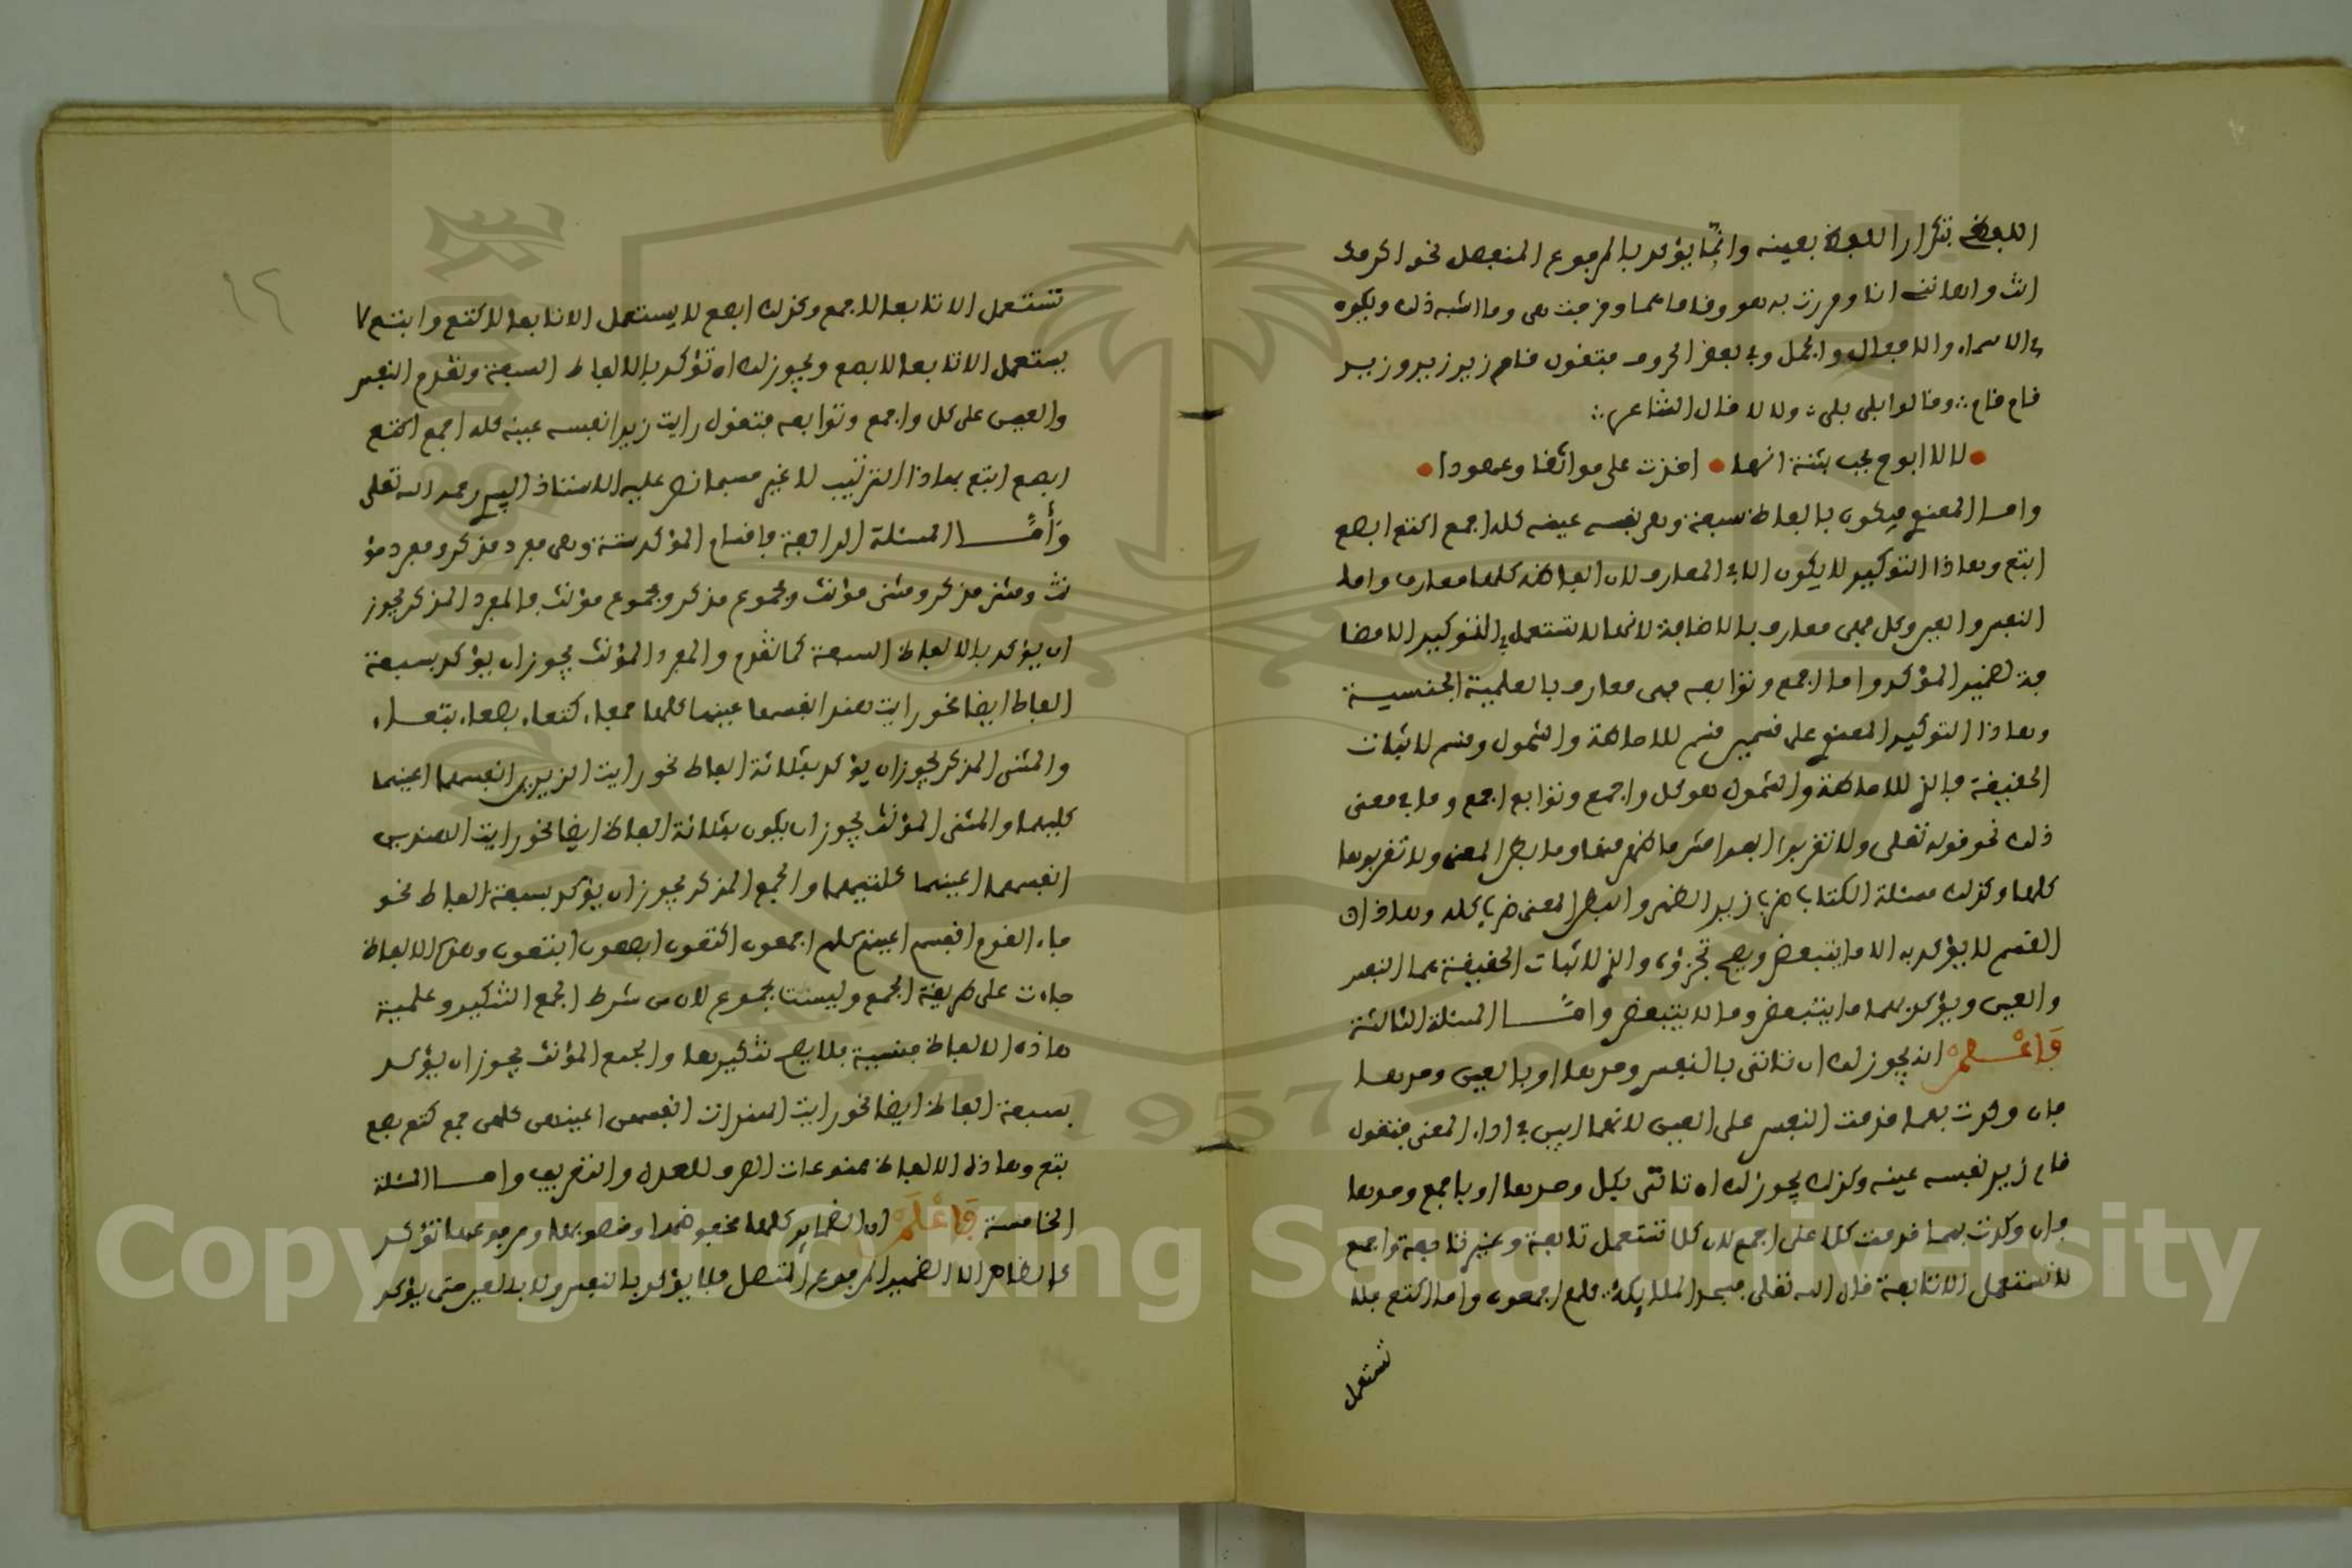 اللفظي بتكرار اللفظ بعينه وانما يؤكد بالمرفوع المنفصل نحو اكرمت
انت واهانني انا ومررت به هو وقاما هما وخرجت هي وما اشبه ذلك ويكون
في الاسماء والافعال والجمل وفي بعض الحروف فتقول قام زيد زيد وزيد
قام قام وقالوا بلى بلى ولا لا قال الشاعر
لا لا ابوح بحب بثنة انها اخذت على مواثقا وعهودا
وامــا المعنوي فيكون بالفاظ سبعة وهي نفسه عينه كله اجمع اكتع ابصع
ابتع وهاذا التوكيد لا يكون الا في المعارف لان الفاظه كلها معارف واما
النفس والعين وكل فهي معارف بالاضافة لانها لا تستعمل في التوكيد الا مضا
فة لضمير المؤكد واما اجمع وتوابعه فهي معارف بالعلمية الجنسية
وهاذا التوكيد المعنوي على قسمين قسم للاحاطة والشمول وقسم لاثبات
الحقيقة فالذي للاحاطة والشمول هو كل واجمع وتوابع اجمع وما في معنى
ذلك نحو قوله تعلى ولا تقربوا الفواحش ما ظهر منها وما بطن المعنى ولا تقربوها
كلها وكذلك مسئلة الكتاب ضرب زيد الظهر والبطن المعنى ضرب كله وهاذان
القسم لا يؤكد به الا ما يتبعض ويصح تجزؤه والذي لاثبات الحقيقة هما النفس
والعين ويؤكد بهما ما يتبعض وما لا يتبعض وامــا المسئلة الثالثة
فَاعْــلَمْ انه يجوز لك ان تاتي بالنفس وحدها او بالعين وحدها
فان وكدت بهما قدمت النفس على العين لانها ابين في اداء المعنى فتقول
قام زيد نفسه عينه وكذلك يجوز لك ان تاتي بكل وحدها او باجمع وحدها
فان وكدت بهما قدمت كلا على اجمع لان كلا تستعمل تابعة وغير تابعة واجمع
لا تستعمل الا تابعة قال الله تعلى فسجد الملايكة كلهم اجمعون واما اكتع فلا
تستعمل
١٢
تستعمل الا تابعا لاجمع وكذلك ابصع لا يستعمل الا تابعا لاكتع وابتع لا
يستعمل الا تابعا لابصع ويجوز لك ان تؤكد بالالفاظ السبعة وتقدم النفس
والعين على كل واجمع وتوابعه فتقول رايت زيدا نفسه عينه كله اجمع اكتع
ابصع ابتع بهاذا الترتيب لا غير حسبما نص عليه الاستاذ رحمه الله تعلى
وَأَمَّــا المسئلة الرابعة فاقسام المؤكد ستة وهي مفرد مذكر ومفرد مؤ
نث ومثنى مذكر ومثنى مؤنث ومجموع مذكر ومجموع مؤنث فالمفرد المذكر يجوز
ان يؤكد بالالفاظ السبعة كما تقدم والمفرد المؤنث يجوز ان يؤكد بسبعة
الفاظ ايضا نحو رايت هندا نفسها عينها كلها جمعاء كتعاء بصعاء بتعاء
والمثنى المذكر يجوز ان يؤكد بثلاثة الفاظ نحو رايت الزيدين انفسهما اعينهما
كليهما والمثنى المؤنث يجوز ان يكون بثلاثة الفاظ ايضا نحو رايت الهندين
انفسهما اعينهما كلتيهما والجمع المذكر يجوز ان يؤكد بسبعة الفاظ نحو
جاء القوم انفسهم اعينهم كلهم اجمعون اكتعون ابصعون ابتعون وهذه الالفاظ
جاءت على طريقة الجمع وليست بجموع لان من شرط الجمع التنكير وعلمية
هاذه الالفاظ جنسية فلا يصح تنكيرها والجمع المؤنث يجوز ان يؤكد
بسبعة الفاظ ايضا نحو رايت الهندات انفسهن اعينهن كلهن جمع كتع بصع
بتع وهاذه الالفاظ ممنوعات الصرف للعدل والتعريف وامــا المسئلة
الخامسة فَاعْلَمْ ان الضماير كلها مخفوضها ومنصوبها ومرفوعها تؤكد
كالظاهر الا الضمير المرفوع المتصل فلا يؤكد بالنفس ولا بالعين حتى يؤكد